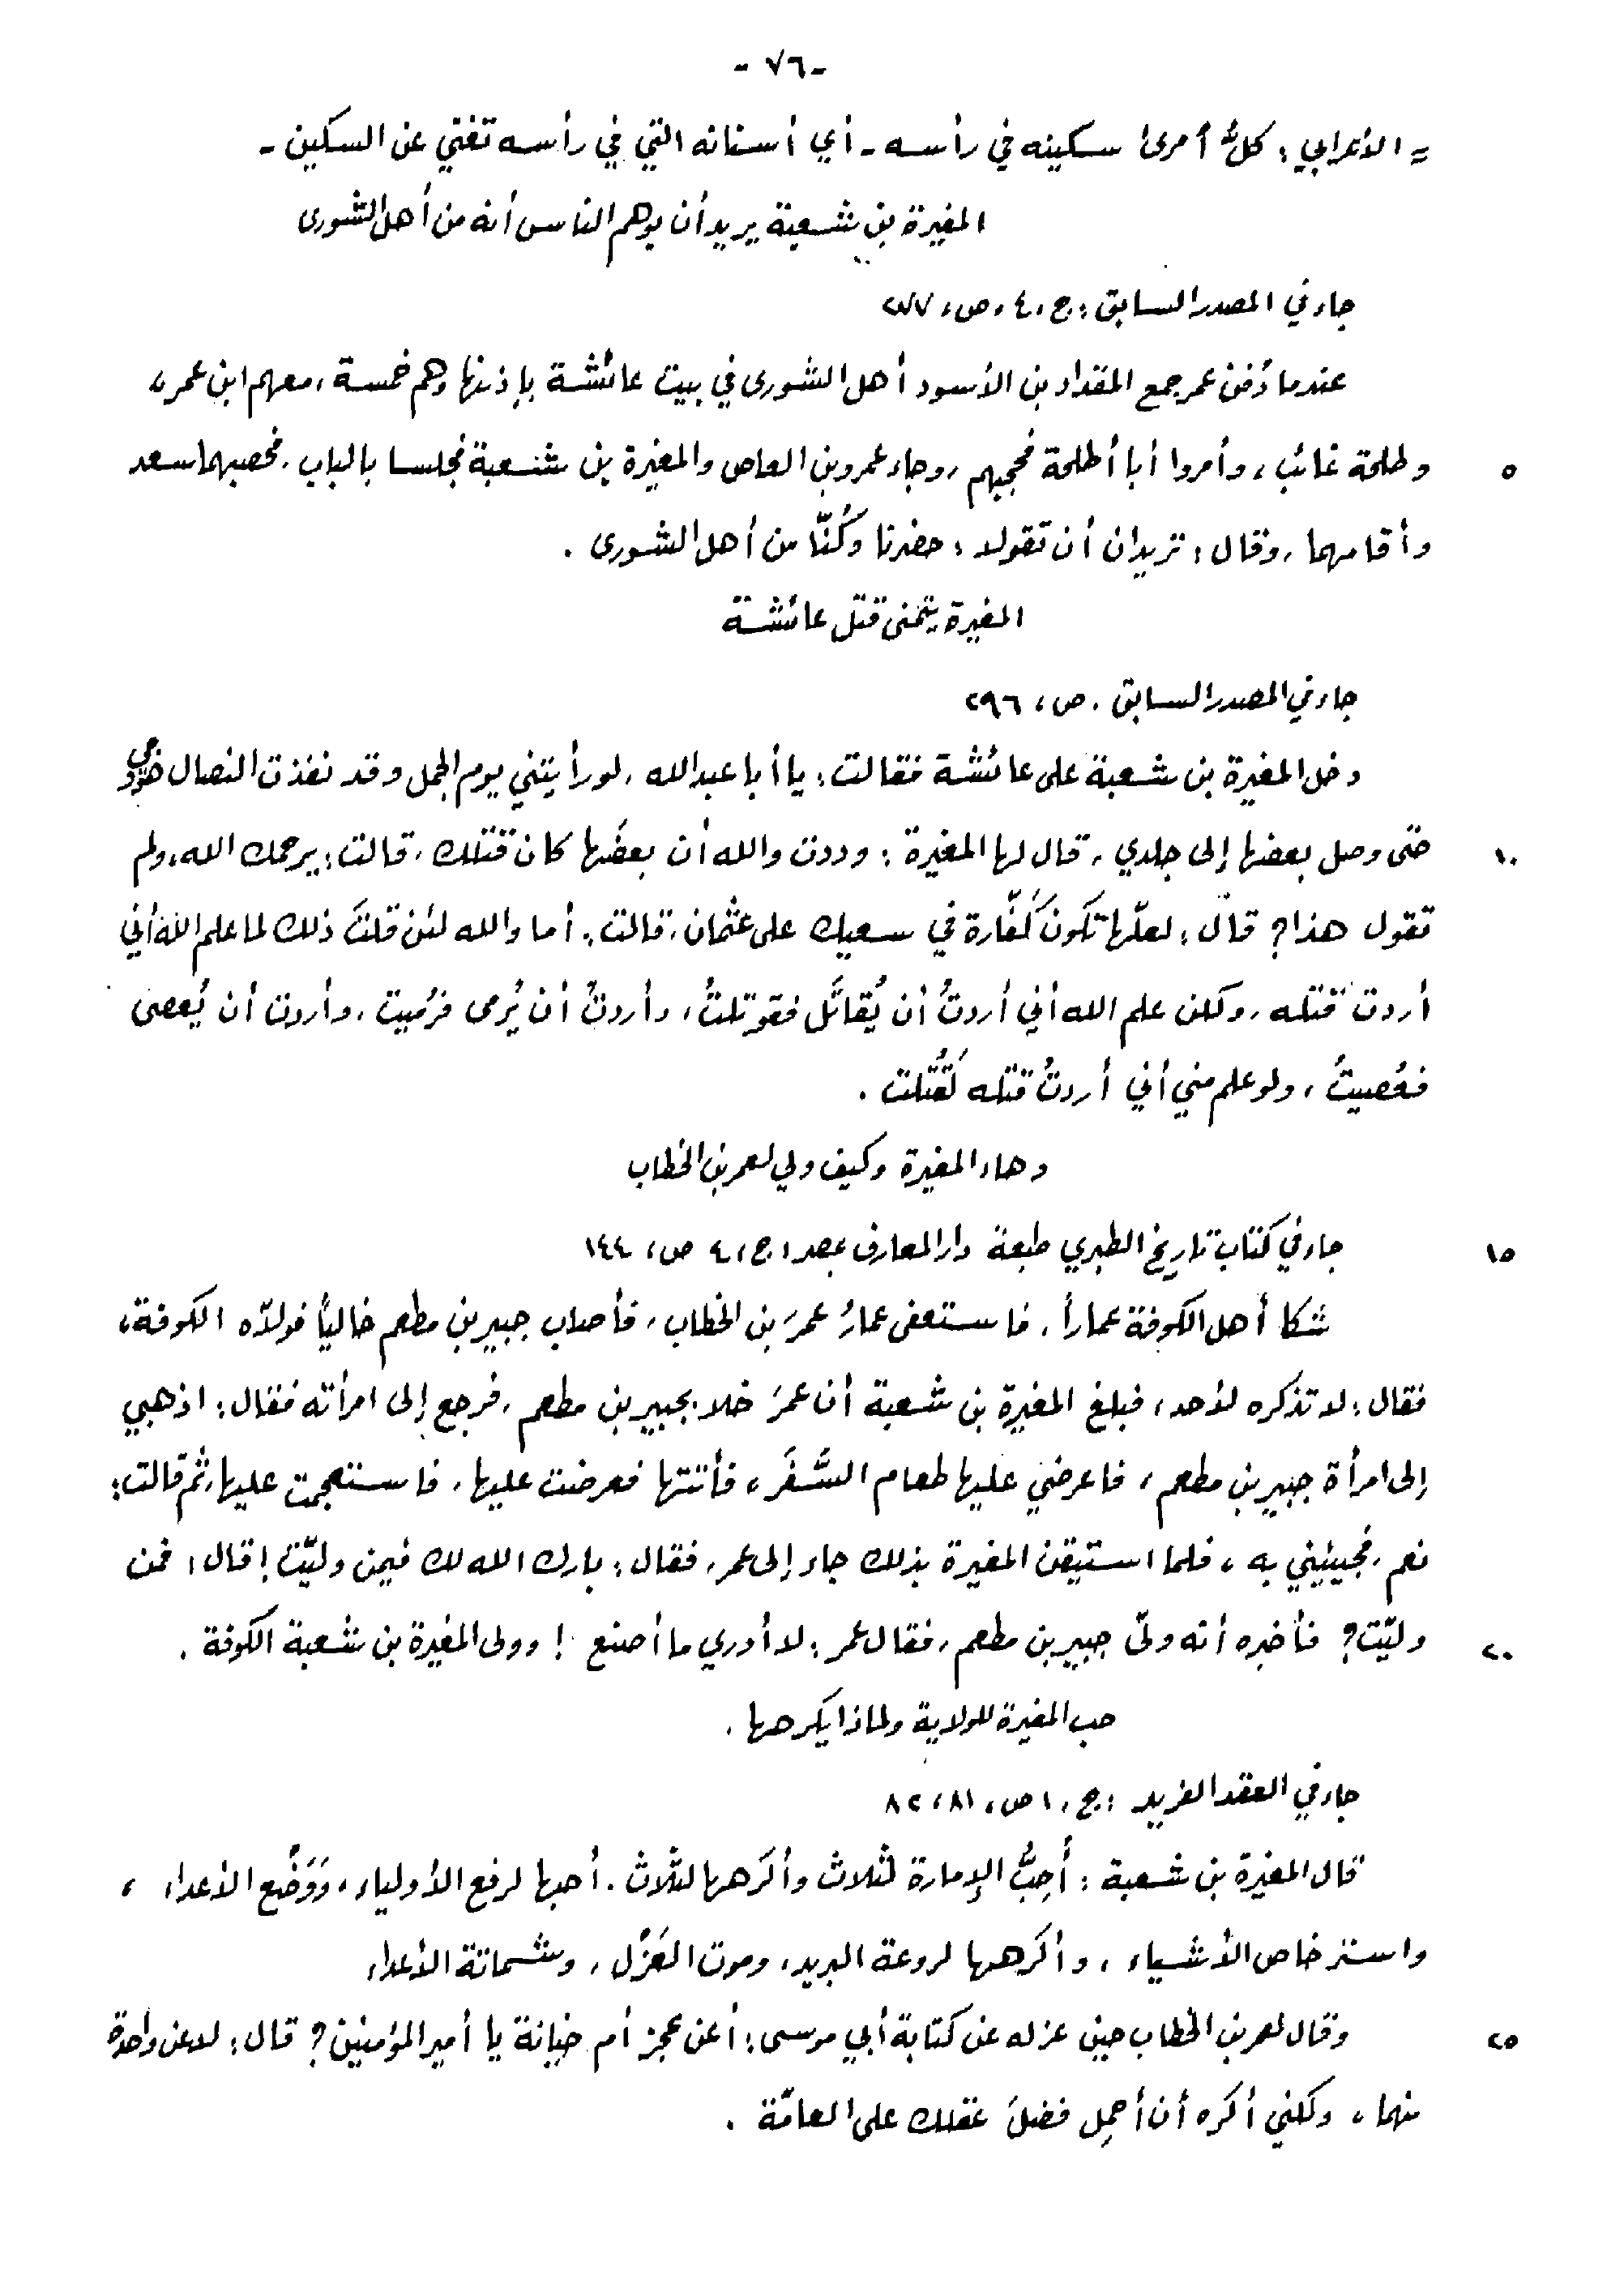 - ٧٦ -
= الأعرابي : كلُّ أمرئ سكينه في رأسه - أي أسنانه التي في رأسه تغني عن السكين -
المغيرة بن شعبة يريد أن يوهم الناس أنه من أهل الشورى
جاء في المصدر السابق : ج ، ٤ ، ص ،
عندما دُفن عمر جمع المقداد بن الأسود أهل الشورى في بيت عائشة بإذنها وهم خمسة ، معهم ابن عمر ،
٥ وطلحة غائب ، وأمروا أبا أطلحة فحجبهم ، وجاء عمرو بن العاص والمغيرة بن شعبة فجلسا بالباب ، فحصبهما سعد
وأقامهما ، وقال : تريدان أن تقولا : حضرنا وكُنّا من أهل الشورى .
المغيرة يتمنى قتل عائشة
جاء في المصدر السابق . ص ، ٢٩٦
دخل المغيرة بن شعبة على عائشة فقالت : يا أبا عبد الله ، لو رأيتني يوم الجمل وقد نفذت النصال هودجي
١٠ حتى وصل بعضها إلى جلدي ، قال لها المغيرة : وددت والله أن بعضَها كان قتلك ، قالت : يرحمك الله ، ولم
تقول هذا ؟ قال : لعلّها تكون كَفّارة في سعيك على عثمان ، قالت : أما والله لئن قلتَ ذلك لما علم الله أني
أردت قتله ، ولكن علم الله أني أردتُ أن يُقاتَل فقوتلتُ ، وأردتُ أن يُرمى فرُميت ، وأردت أن يُعصى
فعُصيتُ ، ولو علم مني أني أردتُ قتله لَقُتلت .
دهاء المغيرة وكيف ولي لعمر بن الخطاب
١٥ جاء في كتاب تاريخ الطبري طبعة دار المعارف بمصر ، ج ، ٤ ص ، ١٤٤
شكا أهل الكوفة عماراً ، فاستعفى عمارُ عمرَ بن الخطاب ، فأصاب جبير بن مطعم خالياً فولاّه الكوفة ،
فقال : لا تذكره لأحد ، فبلغ المغيرة بن شعبة أن عمرَ خلا بجبير بن مطعم ، فرجع إلى امرأته فقال : اذهبي
إلى امرأة جبير بن مطعم ، فاعرضي عليها طعام السَّفَر ، فأتتها فعرضت عليها ، فاستعجمت عليها ، ثم قالت :
نعم ، فجيئيني به ، فلما استيقن المغيرة بذلك جاء إلى عمر ، فقال : بارك الله لك فيمن وليّت ! قال : فمن
٢٠ وليّت ؟ فأخبره أنه ولّى جبير بن مطعم ، فقال عمر : لا أدري ما أصنع ! وولى المغيرة بن شعبة الكوفة .
حب المغيرة للولاية ولماذا يكرهها .
جاء في العقد الفريد : ج ، ١ ص ، ٨١ ، ٨٢
قال المغيرة بن شعبة : أُحِبُّ الإمارة لثلاث وأكرَهها لثلاث . أحبها لرفع الأولياء ، وَوَضْع الأعداء ،
واسترخاص الأشياء ، وأكرهها لروعة البريد ، وموت العَزْل ، وشماتة الأعداء
٢٥ وقال لعمر بن الخطاب حين عزله عن كتابة أبي موسى : أعن عجز أم خيانة يا أمير المؤمنين ؟ قال : لا عن واحدة
منهما ، ولكني أكره أن أحمِل فضلَ عقلك على العامّة .